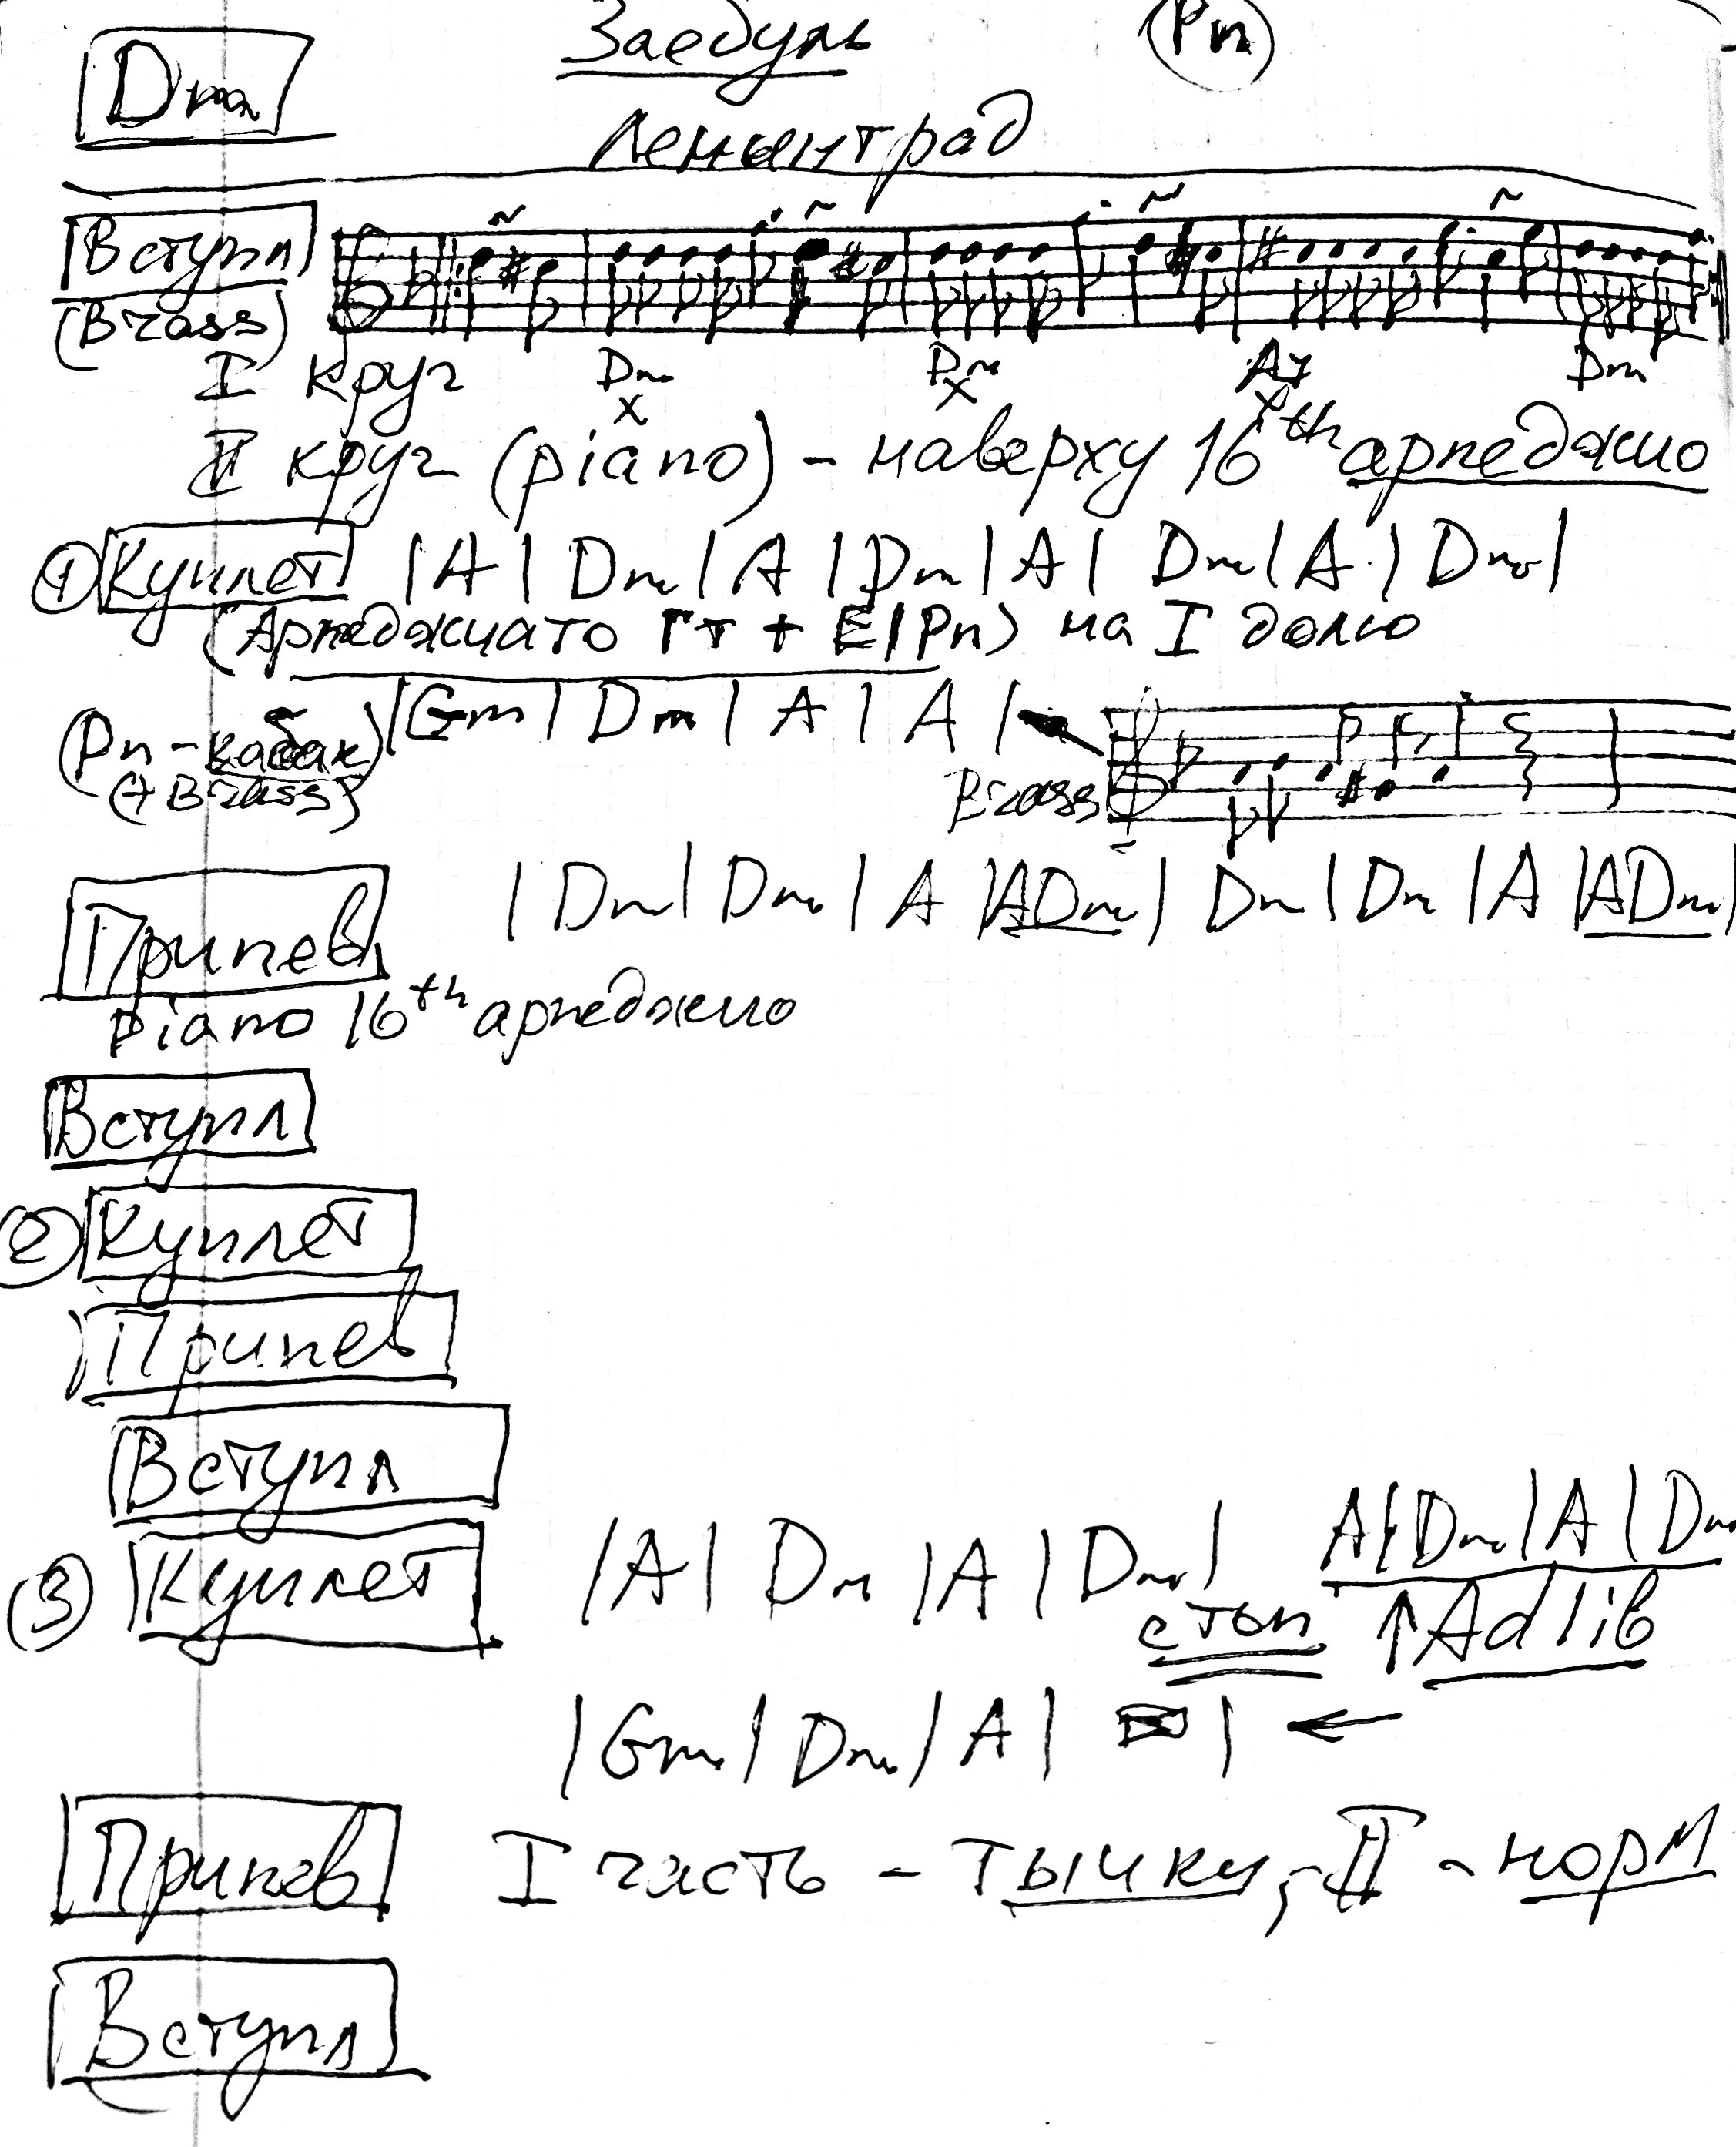 Dm Заебуль Pn
Ленинград
Вступл
(Brass)
I круг Dm Dm A7 Dm
x x x
II круг (piano) - наверху 16th арпеджио
① Куплет | A | Dm | A | Dm | A | Dm | A | Dm |
(Арпеджиато Гт + ElPn) на I долю
(Pn - кабак) | Gm | Dm | A | A |
(+ Brass) Brass
Припев | Dm | Dm | A | ADm | Dm | Dm | A | ADm |
piano 16th арпеджио
Вступл
② Куплет
Припев
Вступл
③ Куплет | A | Dm | A | Dm | A | Dm | A | Dm
стоп ↑ Ad lib
| Gm | Dm | A | | ←
Припев I часть - тычки, - II - норм
Вступл